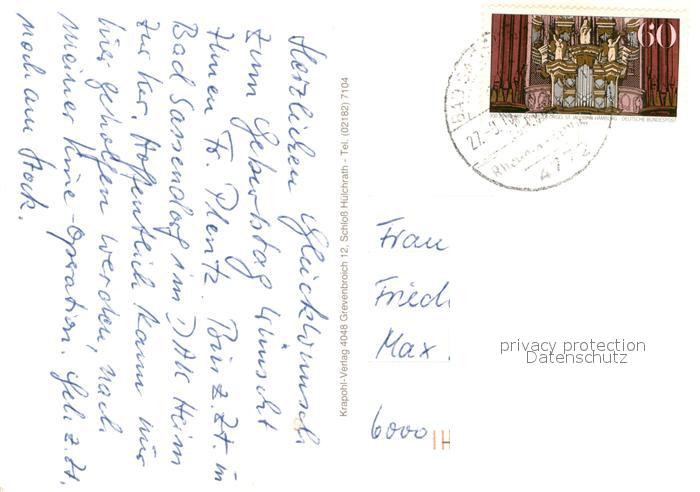 Herzlichen Glückwunsch
zum Geburtstag wünscht
Ihnen Fr. Plentz. Bin z.Zt. in
Bad Sassendorf im DAK Heim
zur Kur. Hoffentlich kann mir
hier geholfen werden, nach
meiner Knie-Operation. Geh z.Zt.
noch am Stock.
Krapohl-Verlag 4048 Grevenbroich 12, Schloß Hülchrath - Tel. (02182) 7104
60
DEUTSCHE BUNDESPOST
4772
Frau
Fried
Max
6000 H
privacy protection
Datenschutz